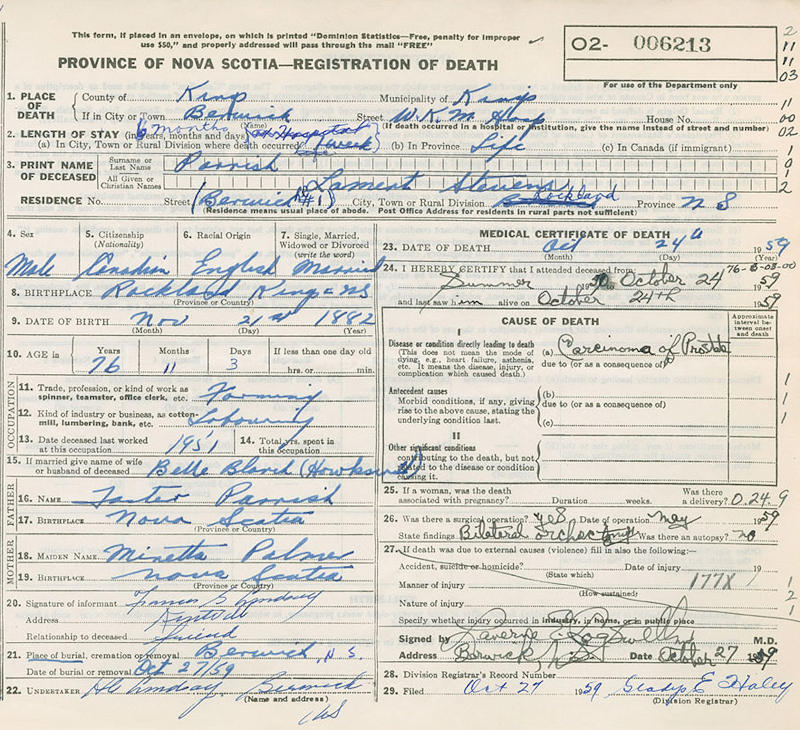 This form, if placed in an envelope, on which is printed "Dominion Statistics—Free, penalty for improper
use $50," and properly addressed will pass through the mail "FREE"
O2- 006213
2
11
11
03
PROVINCE OF NOVA SCOTIA—REGISTRATION OF DEATH
For use of the Department only
1. PLACE OF DEATH { County of Kings Municipality of Kings
If in City or Town Berwick Street W.K.M. Hosp House No.
(If death occurred in a hospital or institution, give the name instead of street and number)
11
00
02
2. LENGTH OF STAY (in years, months and days) 6 months
(a) In City, Town or Rural Division where death occurred (b) In Province Life (c) In Canada (if immigrant)
3. PRINT NAME OF DECEASED { Surname or Last Name Parrish
All Given or Christian Names Lamert Stevens
1
0
1
2
RESIDENCE No. Street (Berwick #1) City, Town or Rural Division Rockland Province N S
(Residence means usual place of abode. Post Office Address for residents in rural parts not sufficient)
4. Sex 5. Citizenship (Nationality) 6. Racial Origin 7. Single, Married, Widowed or Divorced (write the word)
Male Canadian English Married
8. BIRTHPLACE Rockland Kings NS
(Province or Country)
9. DATE OF BIRTH Nov 21 1882
(Month) (Day) (Year)
10. AGE in Years Months Days If less than one day old
76 11 3 hrs. or min.
OCCUPATION
11. Trade, profession, or kind of work as spinner, teamster, office clerk, etc. Farming
12. Kind of industry or business, as cotton-mill, lumbering, bank, etc. Labouring
13. Date deceased last worked at this occupation 1951 14. Total yrs. spent in this occupation
15. If married give name of wife or husband of deceased Belle Blanch
FATHER
16. NAME Foster Parrish
17. BIRTHPLACE Nova Scotia
(Province or Country)
MOTHER
18. MAIDEN NAME Minetta Palmer
19. BIRTHPLACE Nova Scotia
(Province or Country)
20. Signature of informant
Address Kentville
Relationship to deceased friend
21. Place of burial, cremation or removal Berwick, N.S.
Date of burial or removal Oct 27/59
22. UNDERTAKER Lindsay Berwick
(Name and address)
NS
MEDICAL CERTIFICATE OF DEATH
23. DATE OF DEATH Oct 24 1959
(Month) (Day) (Year)
24. I HEREBY CERTIFY that I attended deceased from 76-B-03-00
Summer 19 to October 24 1959
and last saw him alive on October 24th 1959
CAUSE OF DEATH
Approximate interval between onset and death
I
Disease or condition directly leading to death (This does not mean the mode of dying, e.g., heart failure, asthenia, etc. It means the disease, injury, or complication which caused death.)
(a) Carcinoma of Prostate
due to (or as a consequence of)
Antecedent causes
Morbid conditions, if any, giving rise to the above cause, stating the underlying condition last.
(b)
due to (or as a consequence of)
(c)
1
1
1
II
Other significant conditions contributing to the death, but not related to the disease or condition causing it.
25. If a woman, was the death associated with pregnancy? Duration weeks. Was there a delivery? 0.24.9
26. Was there a surgical operation? yes Date of operation May 1959
State findings Bilateral Orchectomy Was there an autopsy? no
27. If death was due to external causes (violence) fill in also the following:—
Accident, suicide or homicide? Date of injury 19
(State which)
177X
Manner of injury
(How sustained)
Nature of injury
1
2
1
Specify whether injury occurred in industry, in home, or in public place
Signed by M.D.
Address Berwick, N.S. Date October 27 1959
28. Division Registrar's Record Number
29. Filed Oct 27 1959 Gladys E Haley
(Division Registrar)